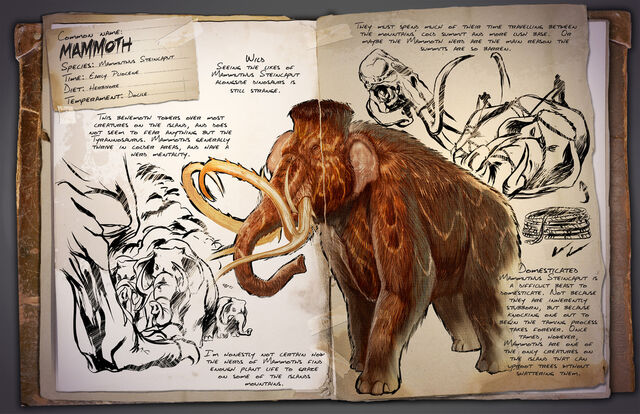 Common Name:
Mammoth
Species: Mammuthus Steincaput
Time: Early Pliocene
Diet: Herbivore
Temperament: Docile
This behemoth towers over most
creatures on the island, and does
not seem to fear anything but the
Tyrannosaurus. Mammoths generally
thrive in colder areas, and have a
herd mentality.
I'm honestly not certain how
the herds of Mammoths find
enough plant life to graze
on some of the islands
mountains.
Wild
Seeing the likes of
Mammuthus Steincaput
alongside dinosaurs is
still strange.
They must spend much of their time travelling between
the mountains cold summit and more lush base. Or
maybe the Mammoth herd are the main reason the
summits are so barren.
Domesticated
Mammuthus Steincaput is
a difficult beast to
domesticate. Not because
they are inherently
stubborn, but because
knocking one out to
begin the taming process
takes forever. Once
tamed, however,
Mammoths are one of
the only creatures on
the island that can
uproot trees without
shattering them.